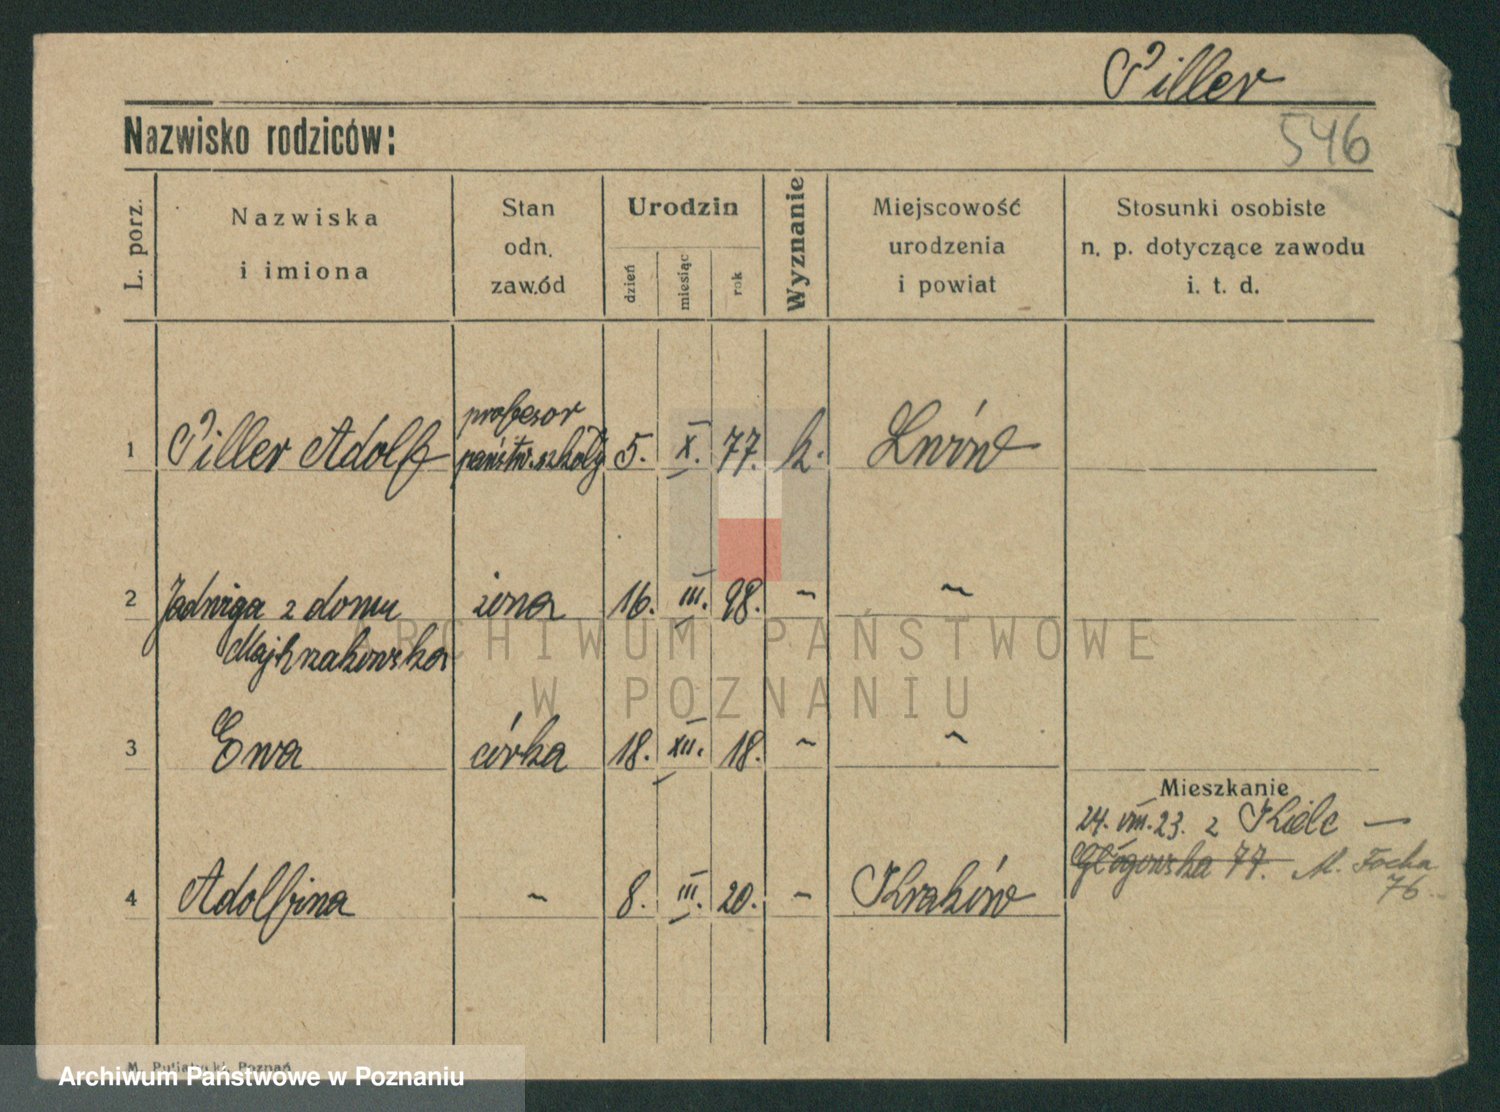 Piller
Nazwisko rodziców:
546
L. porz.
Nazwiska
i imiona
Stan
odn.
zawód
Urodzin
dzień
miesiąc
rok
Wyznanie
Miejscowość
urodzenia
i powiat
Stosunki osobiste
n. p. dotyczące zawodu
i. t. d.
1 Piller Adolf profesor 5. X. 77. k. Lwów
państw. szkoły
2 Jadwiga z domu żona 16. III. 98. ~ ~
ARCHIWUM PAŃSTWOWE
W POZNANIU
3 Ewa córka 18. XII. 18. ~ ~
Mieszkanie
24. VIII. 23. z Kielc —
Głogowska 77. M. Focha
76.
4 Adolfina ~ 8. III. 20. ~ Kraków
Poznań
Archiwum Państwowe w Poznaniu